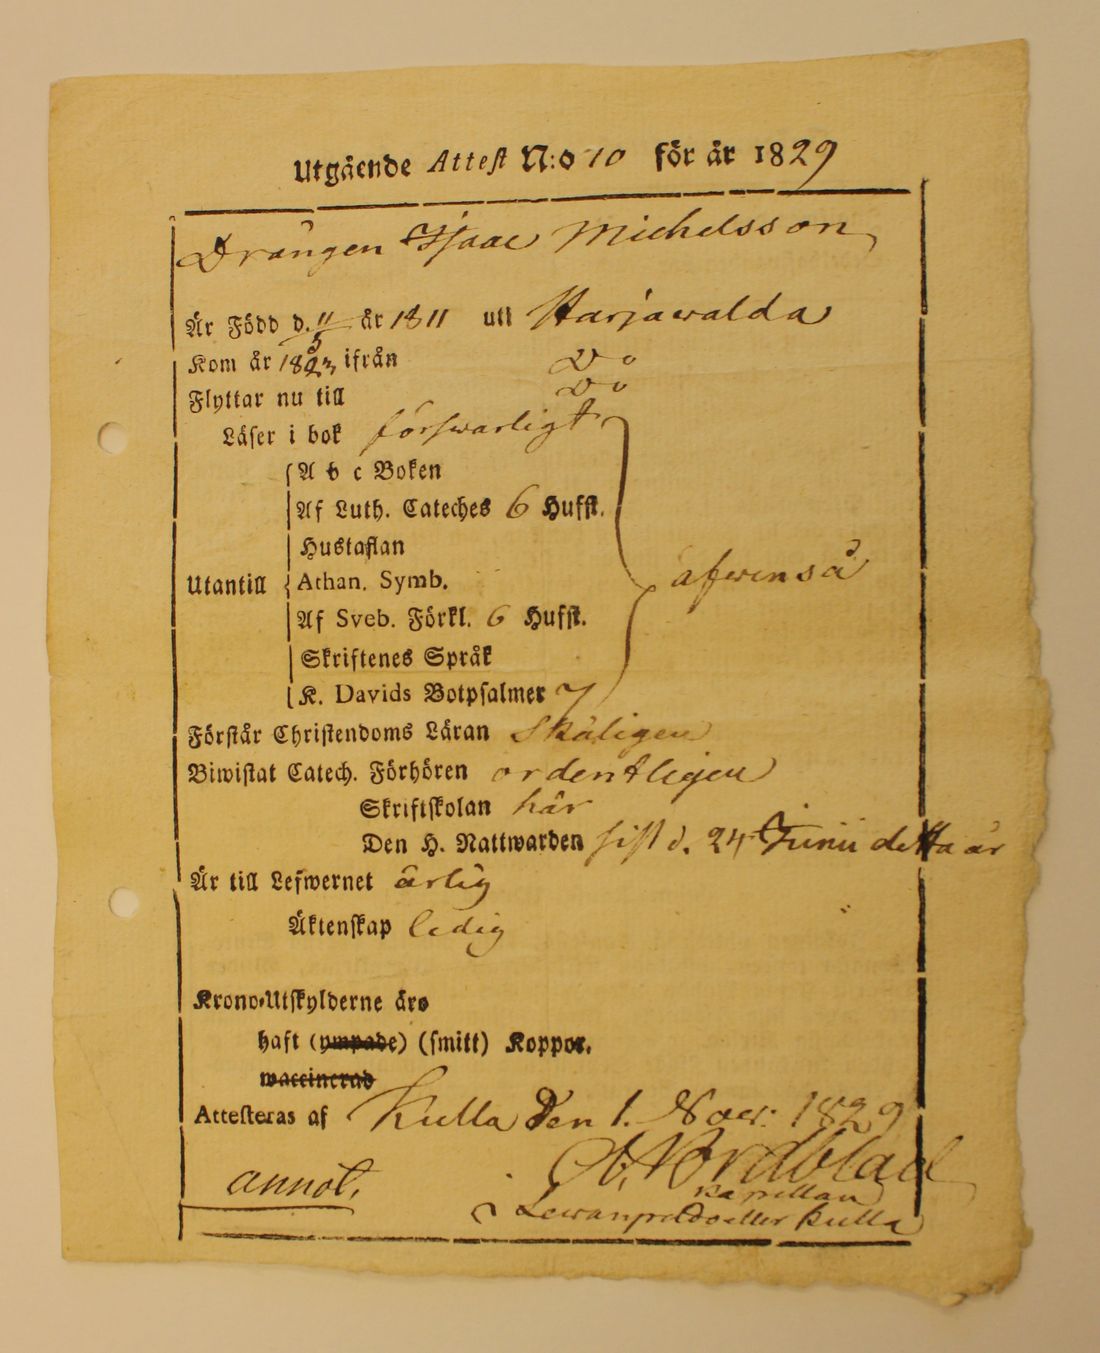 Utgående Attest N:o 10 för år 1829
Drängen Isaac Michelsson
Är Född d. 11/5 år 1811 uti Harjawalda
Kom år 1823 ifrån Do
Flyttar nu till Do
Läser i bok förswarligt
A b c Boken
Af Luth. Cateches 6 Hufst.
Hustaflan
Utantill Athan. Symb. äfwen så
Af Sveb. Förkl. 6 Hufst.
Skriftenes Språk
K. Davids Botpsalmer 7
Förstår Christendoms Läran Skäligen
Biwistat Catech. Förhören ordentligen
Skriftskolan här
Den H. Nattwarden sist d. 24 Junii detta år
Är till Lefwernet ärlig
Äktenskap ledig
Krono-Utskylderne äro
haft (ympade) (smitt) Koppor.
waccinerad
Attesteras af Kulla Den 1. Nov: 1829
Nordblad
Kapellan
annot. i Lewanpeldo eller Kulla